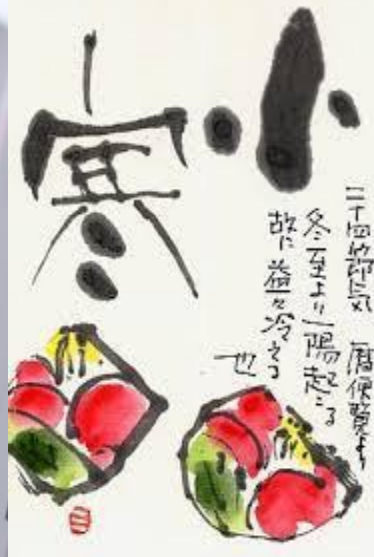 小寒
二十四節気 暦便覧より
冬至より一陽起こる
故に益々冷える
也